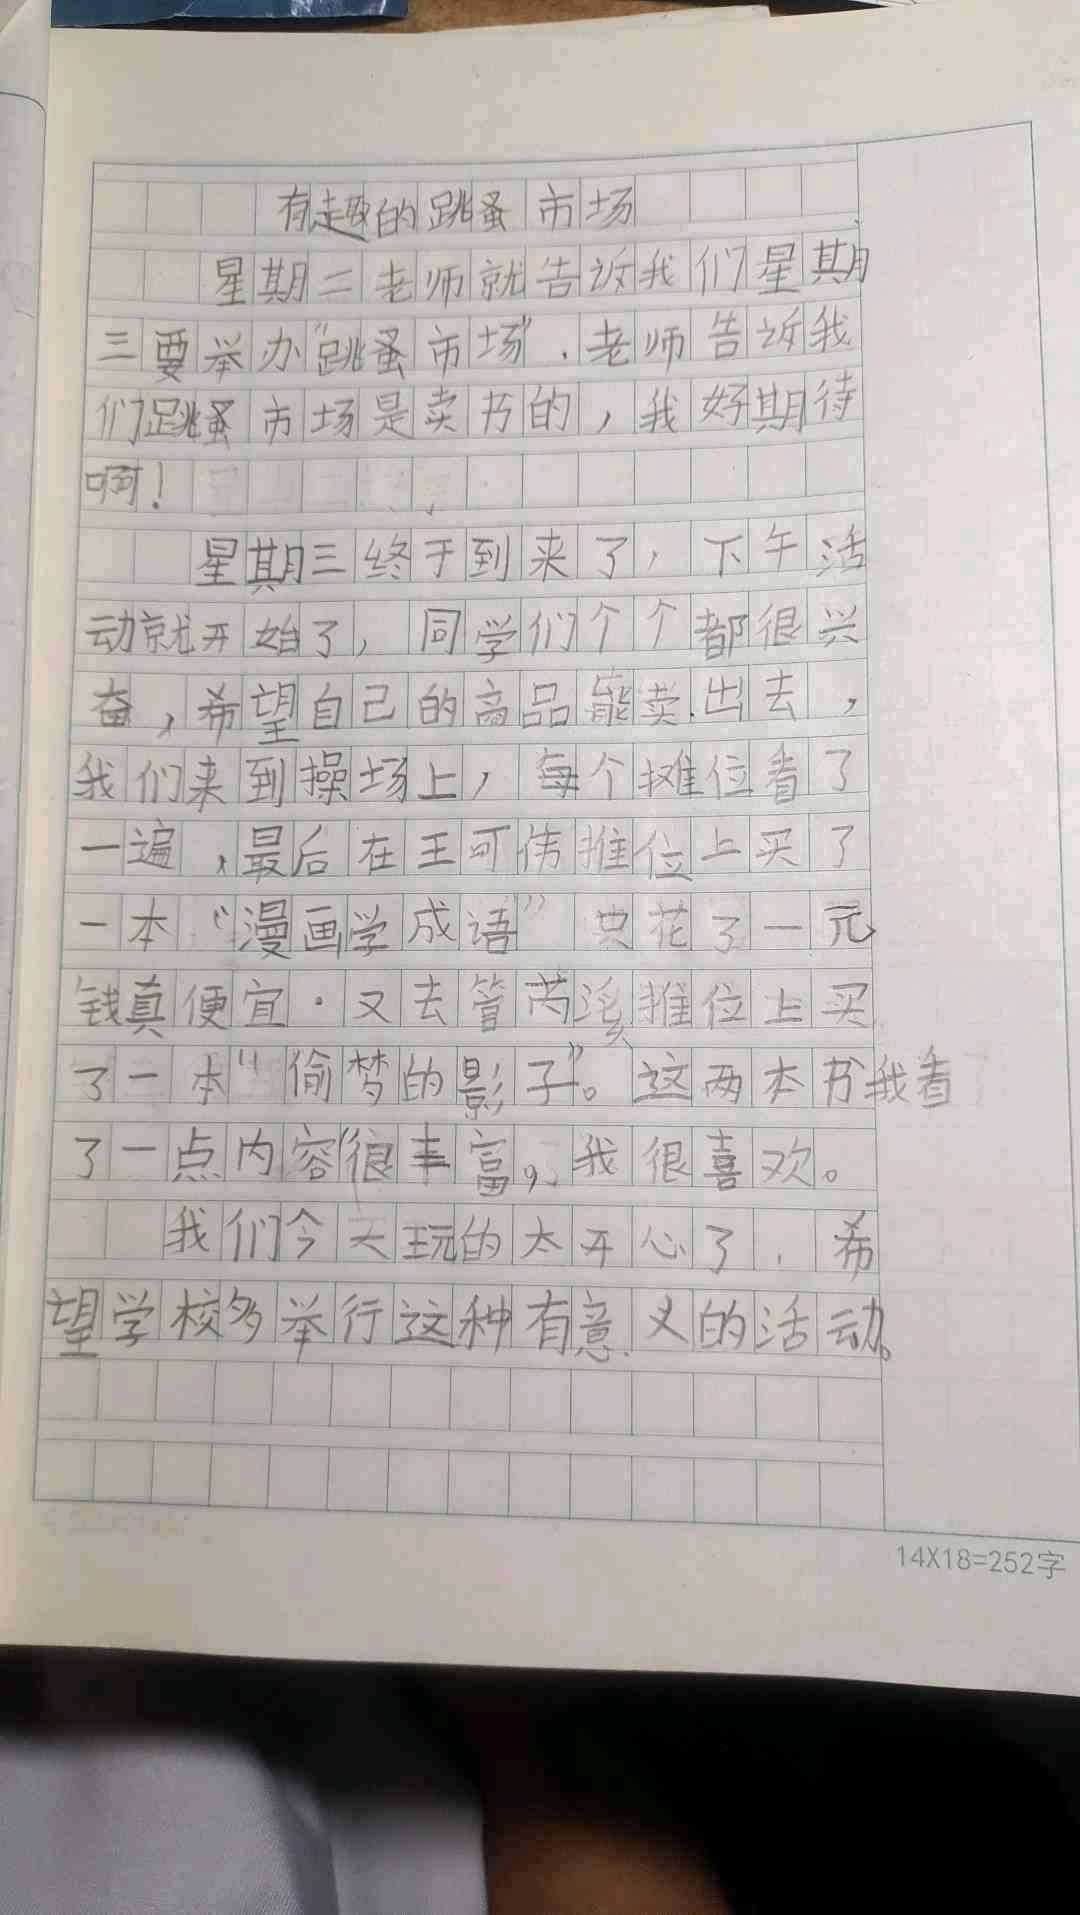 有趣的跳蚤市场
星期二老师就告诉我们星期
三要举办“跳蚤市场”.老师告诉我
们跳蚤市场是卖书的，我好期待
啊！
星期三终于到来了，下午活
动就开始了，同学们个个都很兴
奋，希望自己的商品能卖出去，
我们来到操场上，每个摊位看了
一遍，最后在王可伟推位上买了
一本“漫画学成语”只花了一元
钱真便宜.又去管芮溪推位上买
了一本“偷梦的影子”。这两本书我看
了一点内容很丰富，我很喜欢。
我们今天玩的太开心了.希
望学校多举行这种有意义的活动。
14X18=252字